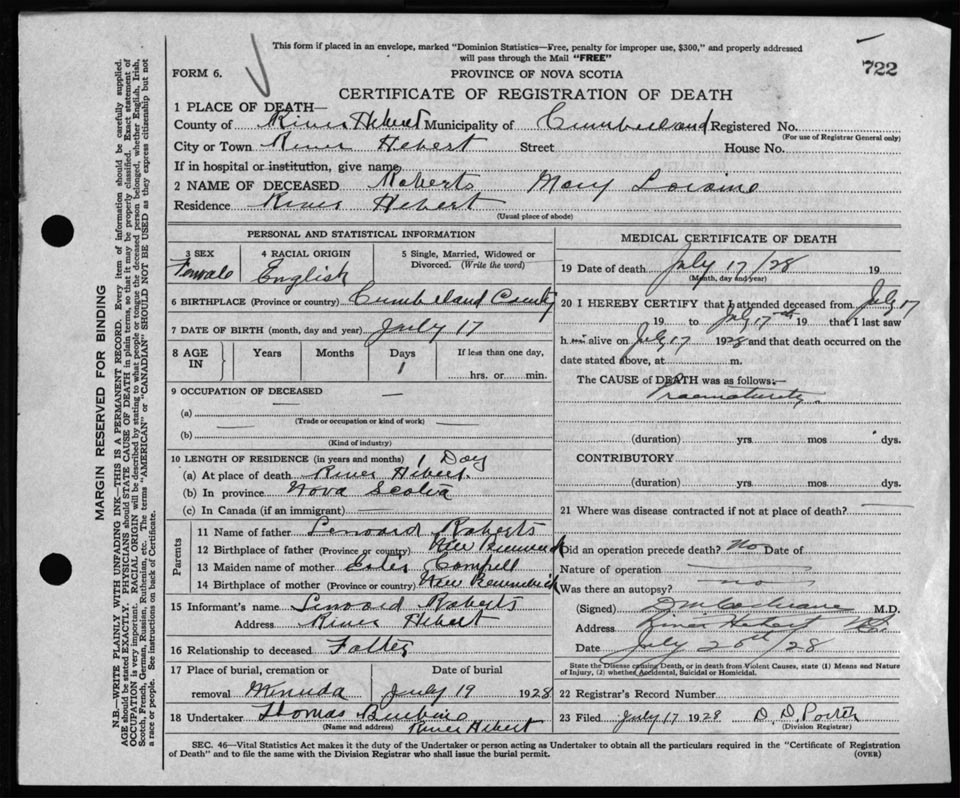 This form if placed in an envelope, marked "Dominion Statistics—Free, penalty for improper use, $300," and properly addressed
will pass through the Mail "FREE"
722
FORM 6.
PROVINCE OF NOVA SCOTIA
CERTIFICATE OF REGISTRATION OF DEATH
1 PLACE OF DEATH—
County of River Hebert Municipality of Cumberland Registered No.
(For use of Registrar General only)
City or Town River Hebert Street House No.
If in hospital or institution, give name
2 NAME OF DECEASED Roberts Mary Loraine
Residence River Hebert
(Usual place of abode)
PERSONAL AND STATISTICAL INFORMATION
3 SEX Female
4 RACIAL ORIGIN English
5 Single, Married, Widowed or Divorced. (Write the word)
6 BIRTHPLACE (Province or country) Cumberland County
7 DATE OF BIRTH (month, day and year) July 17
8 AGE IN Years Months Days 1 If less than one day, hrs. or min.
9 OCCUPATION OF DECEASED
(a) —
(Trade or occupation or kind of work)
(b) —
(Kind of industry)
10 LENGTH OF RESIDENCE (in years and months) 1 Day
(a) At place of death River Hibert
(b) In province Nova Scotia
(c) In Canada (if an immigrant) —
Parents
11 Name of father Lenoard Roberts
12 Birthplace of father (Province or country) New Brunswick
13 Maiden name of mother Ester Compell
14 Birthplace of mother (Province or country) New Brunswick
15 Informant's name Lenoard Roberts
Address River Hibert
16 Relationship to deceased Father
17 Place of burial, cremation or removal Minuda
Date of burial July 19 1928
18 Undertaker Thomas
(Name and address) River Hebert
MEDICAL CERTIFICATE OF DEATH
19 Date of death July 17/28 19
(Month, day and year)
20 I HEREBY CERTIFY that I attended deceased from July 17
19 to July 17th 19 that I last saw
h alive on July 17 1928 and that death occurred on the
date stated above, at m.
The CAUSE of DEATH was as follows:—
Praematurity.
(duration) yrs. mos. dys.
CONTRIBUTORY
(duration) yrs. mos. dys.
21 Where was disease contracted if not at place of death? —
Did an operation precede death? No Date of
Nature of operation —
Was there an autopsy? no
(Signed) D M Cochrane M.D.
Address River Hebert NS.
Date July 20th/28
State the Disease causing Death, or in death from Violent Causes, state (1) Means and Nature
of Injury, (2) whether Accidental, Suicidal or Homicidal.
22 Registrar's Record Number
23 Filed July 17 1928 D. D.
(Division Registrar)
SEC. 46—Vital Statistics Act makes it the duty of the Undertaker or person acting as Undertaker to obtain all the particulars required in the "Certificate of Registration
of Death" and to file the same with the Division Registrar who shall issue the burial permit.
(OVER)
MARGIN RESERVED FOR BINDING
N.B.—WRITE PLAINLY WITH UNFADING INK—THIS IS A PERMANENT RECORD. Every item of information should be carefully supplied.
AGE should be stated EXACTLY. PHYSICIANS should STATE CAUSE OF DEATH in plain terms, so that it may be properly classified. Exact statement of
OCCUPATION is very important. RACIAL ORIGIN will be described by stating to what people or tongue the deceased person belonged, whether English, Irish,
Scotch, French, German, Russian, Ruthenian, etc. The terms "AMERICAN" or "CANADIAN" SHOULD NOT BE USED as they express citizenship but not
a race or people. See instructions on back of Certificate.